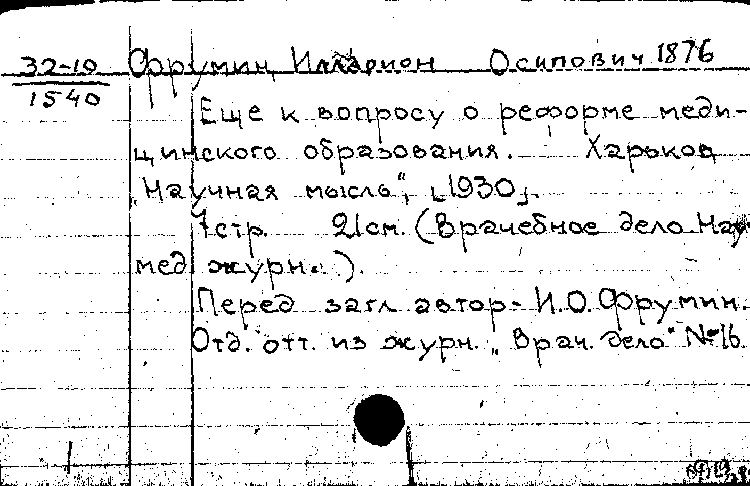 32-10 Фрумин, Илларион Осипович 1876
1540
Еще к вопросу о реформе меди-
цинского образования. Харьков,
"Научная мысль", [1930].
7 стр. 21 см. (Врачебное дело. Науч.
мед. журн. ).
Перед загл. автор- И.О. Фрумин.
Отд. отт. из журн. "Врач. дело" № 16.